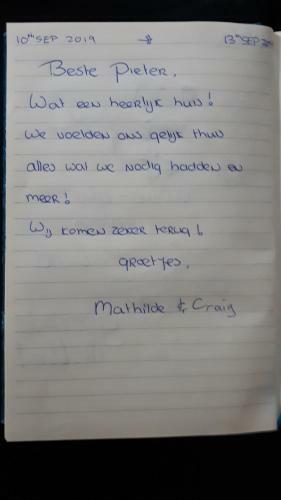 10th SEP 2019 → 13th SEP
Beste Pieter,
Wat een heerlijk huis!
We voelden ons gelijk thuis
alles wat we nodig hadden en
meer!
Wij komen zeker terug!
groetjes,
Mathilde & Craig